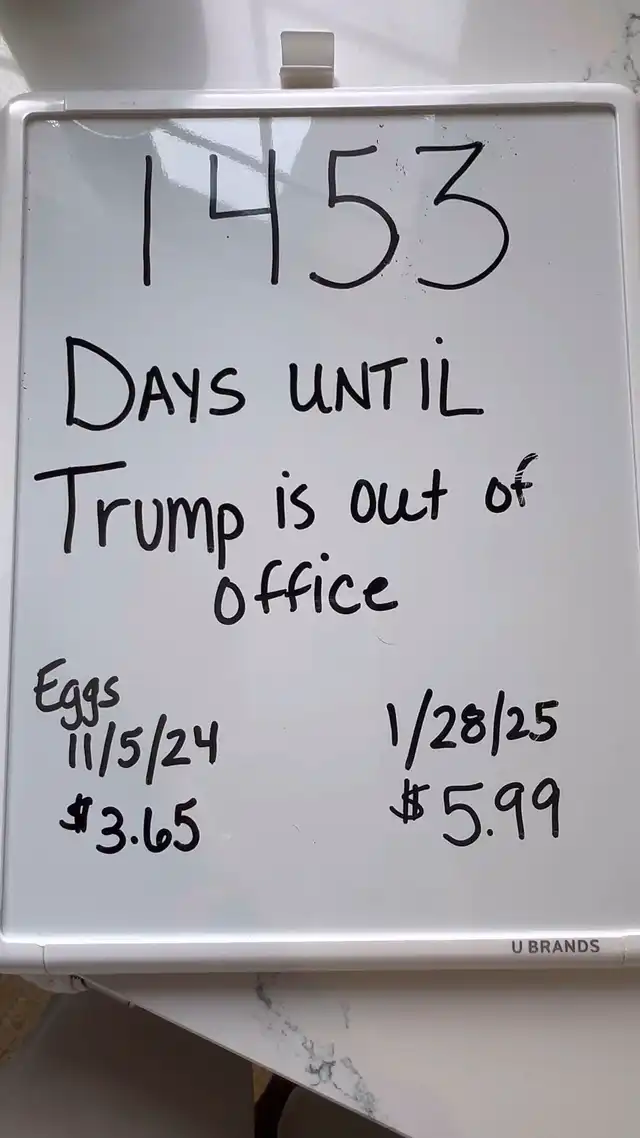 1453
DAYS UNTIL
Trump is out of
office
Eggs
11/5/24 1/28/25
$3.65 $5.99
U BRANDS